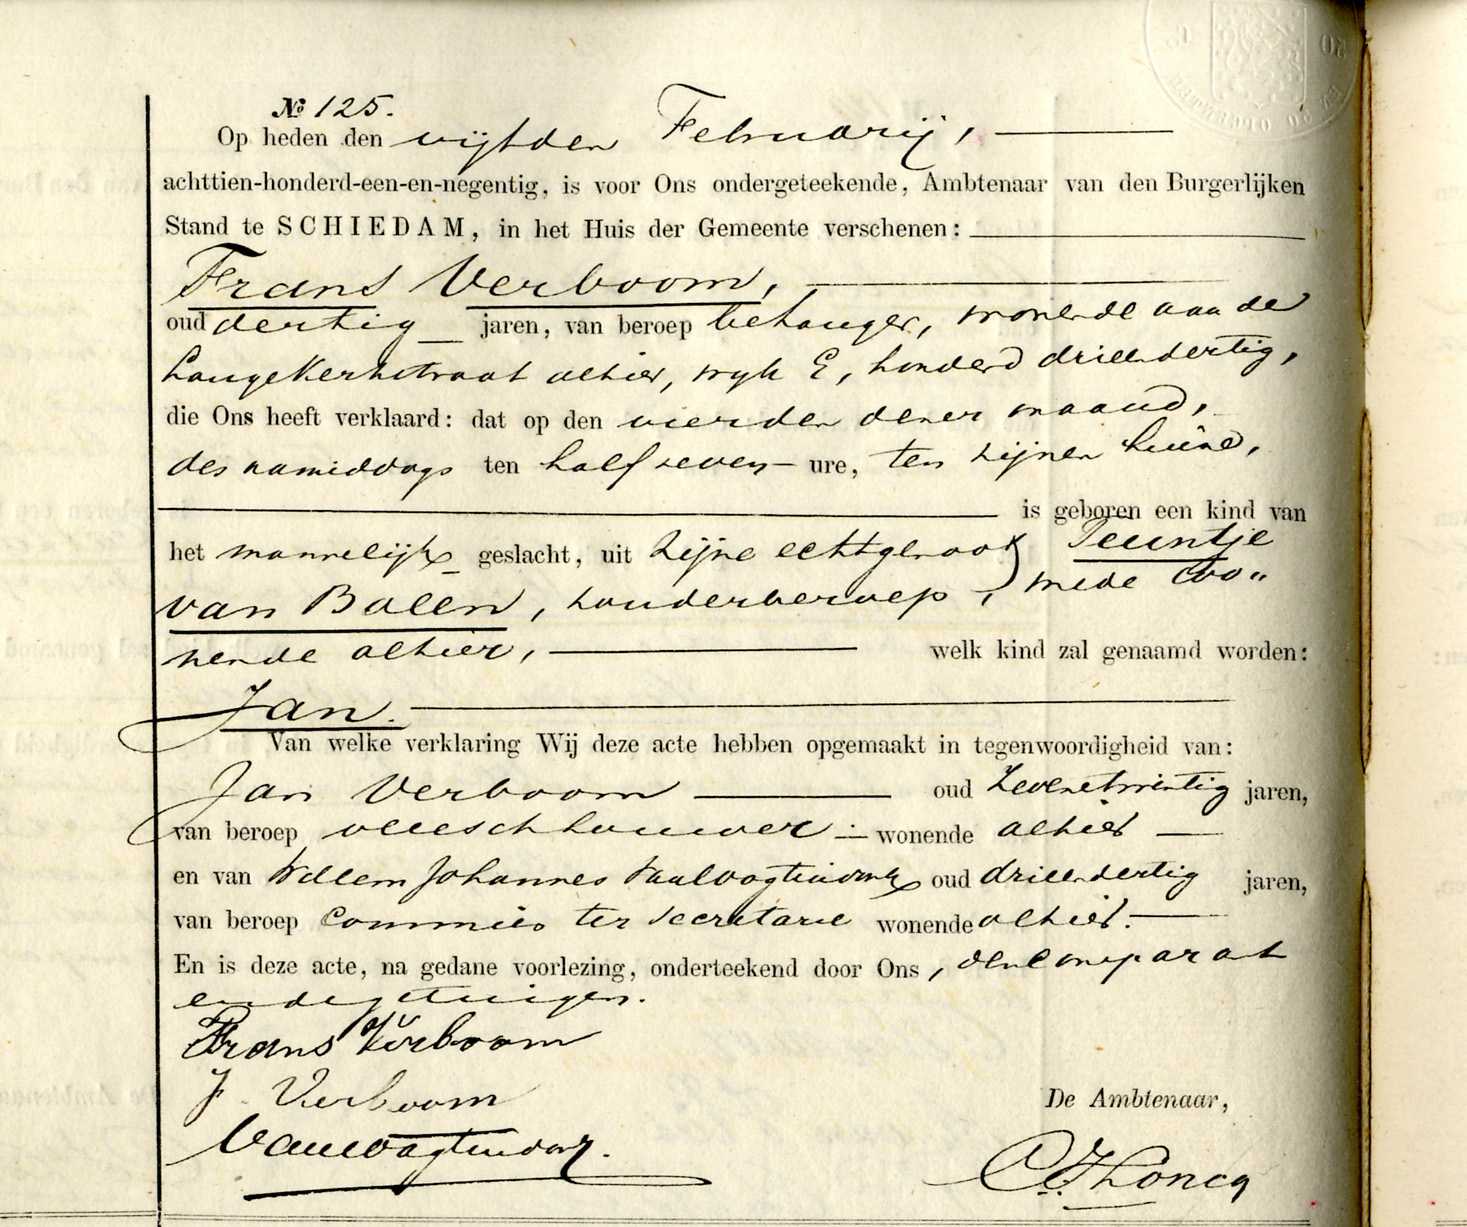 № 125.
Op heden den vijfden Februarij,
achttien-honderd-een-en-negentig, is voor Ons ondergeteekende, Ambtenaar van den Burgerlijken
Stand te SCHIEDAM, in het Huis der Gemeente verschenen:
Frans Verboom,
oud dertig jaren, van beroep behanger, wonende aan de
Lange Kerkstraat alhier, wyk E, honderd drieendertig,
die Ons heeft verklaard: dat op den vierden dezer maand,
des namiddags ten half zeven ure, ten zijnen huize,
is geboren een kind van
het mannelijk geslacht, uit zijne echtgenoot Teuntje
van Balen, zonder beroep, mede wo„
nende alhier, welk kind zal genaamd worden:
Jan.
Van welke verklaring Wij deze acte hebben opgemaakt in tegenwoordigheid van:
Jan Verboom oud zevenentwintig jaren,
van beroep vleeschhouwer wonende alhier
en van Willem Johannes oud drieendertig jaren,
van beroep commies ter secretarie wonende alhier.
En is deze acte, na gedane voorlezing, onderteekend door Ons, den comparant
en de getuigen.
Frans Verboom
J. Verboom
De Ambtenaar,